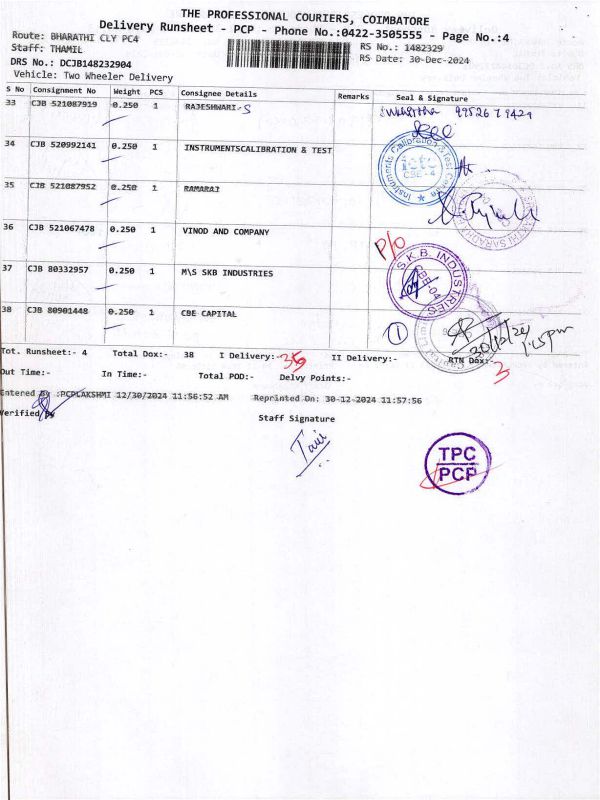 THE PROFESSIONAL COURIERS, COIMBATORE
Delivery Runsheet - PCP - Phone No.:0422-3505555 - Page No.:4
Route: BHARATHI CLY PC4
RS No.: 1482329
Staff: THAMIL
RS Date: 30-Dec-2024
DRS No.: DCJB148232904
Vehicle: Two Wheeler Delivery
S No Consignment No Weight PCS Consignee Details Remarks Seal & Signature
33 CJB 521087919 0.250 1 RAJESHWARI-S
34 CJB 520992141 0.250 1 INSTRUMENTSCALIBRATION & TEST
Instruments Calibration & Test Centre
ictc
CBE - 4
35 CJB 521087952 0.250 1 RAMARAJ
36 CJB 521067478 0.250 1 VINOD AND COMPANY
P/O
37 CJB 80332957 0.250 1 M\S SKB INDUSTRIES
S.K.B. INDUSTRIES
CBE-04
38 CJB 80901448 0.250 1 CBE CAPITAL
1
30/12/24
1.15pm
Tot. Runsheet:- 4 Total Dox:- 38 I Delivery:- 35 II Delivery:- RTN Dox:- 3
Out Time:- In Time:- Total POD:- Delvy Points:-
Entered By :PCPLAKSHMI 12/30/2024 11:56:52 AM Reprinted On: 30-12-2024 11:57:56
Verified By
Staff Signature
TPC
PCP